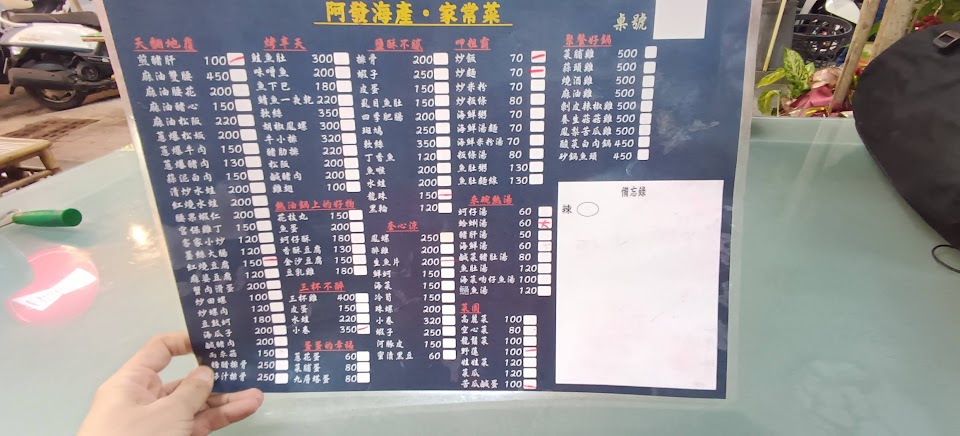 阿發海產·家常菜
桌號
天翻地覆
煎豬肝 100
麻油雙腰 450
麻油腰花 200
麻油豬心 150
麻油松阪 220
蔥爆松板 200
蔥爆牛肉 150
蔥爆豬肉 130
蒜泥白肉 150
清炒水蛙 200
紅燒水蛙 200
腰果蝦仁 200
宮保雞丁 150
客家小炒 120
薑絲大腸 120
紅燒豆腐 150
麻婆豆腐 120
蟹肉滑蛋 200
炒田螺 100
炒螺肉 120
豆鼓蚵 180
海瓜子 200
鹹豬肉 200
雨來菇 150
排骨 250
汁排骨 250
烤半天
鮭魚肚 300
味噌魚 200
魚下巴 180
鯖魚一夜乾 220
軟絲 350
胡椒鳳螺 300
牛小排 320
豬肋排 220
松阪 200
鹹豬肉 200
雞翅 100
熱油鍋上的好物
花枝丸 150
魚蛋 200
蚵仔酥 180
香酥豆腐 130
金沙豆腐 150
豆乳雞 180
三杯不醉
三杯雞 400
皮蛋 150
水蛙 220
小卷 350
蛋蛋的幸福
蔥花蛋 60
菜脯蛋 80
九層塔蛋 80
鹽酥不膩
排骨 200
蝦子 250
皮蛋 150
虱目魚肚 150
四季肥腸 200
斑鳩 250
軟絲 350
丁香魚 120
魚喉 200
水蛙 200
龍珠 150
黑輪 120
透心涼
鳳螺 250
醉雞 200
生魚片 200
鮮蚵 150
海菜 150
冷筍 150
珠螺 200
小卷 320
蝦子 250
河豚皮 150
蜜漬黑豆 60
呷粗霸
炒飯 70
炒麵 70
炒米粉 70
炒粄條 80
海鮮粥 70
海鮮湯麵 70
海鮮米粉湯 70
粄條湯 80
魚肚粥 130
魚肚麵線 130
來碗熱湯
蚵仔湯 60
蛤蜊湯 60
豬肝湯 50
海鮮湯 60
鹹菜豬肚湯 60
魚肚湯 120
海菜吻仔魚湯 100
魚湯 120
菜園
高麗菜 100
空心菜 80
龍鬚菜 100
野蓮 100
娃娃菜 120
菜瓜 120
苦瓜鹹蛋 100
聚餐好鍋
菜脯雞 500
蒜頭雞 500
燒酒雞 500
麻油雞 500
剝皮辣椒雞 500
養生菇菇雞 500
鳳梨苦瓜雞 500
酸菜白肉鍋 450
砂鍋魚頭 450
備忘錄
辣